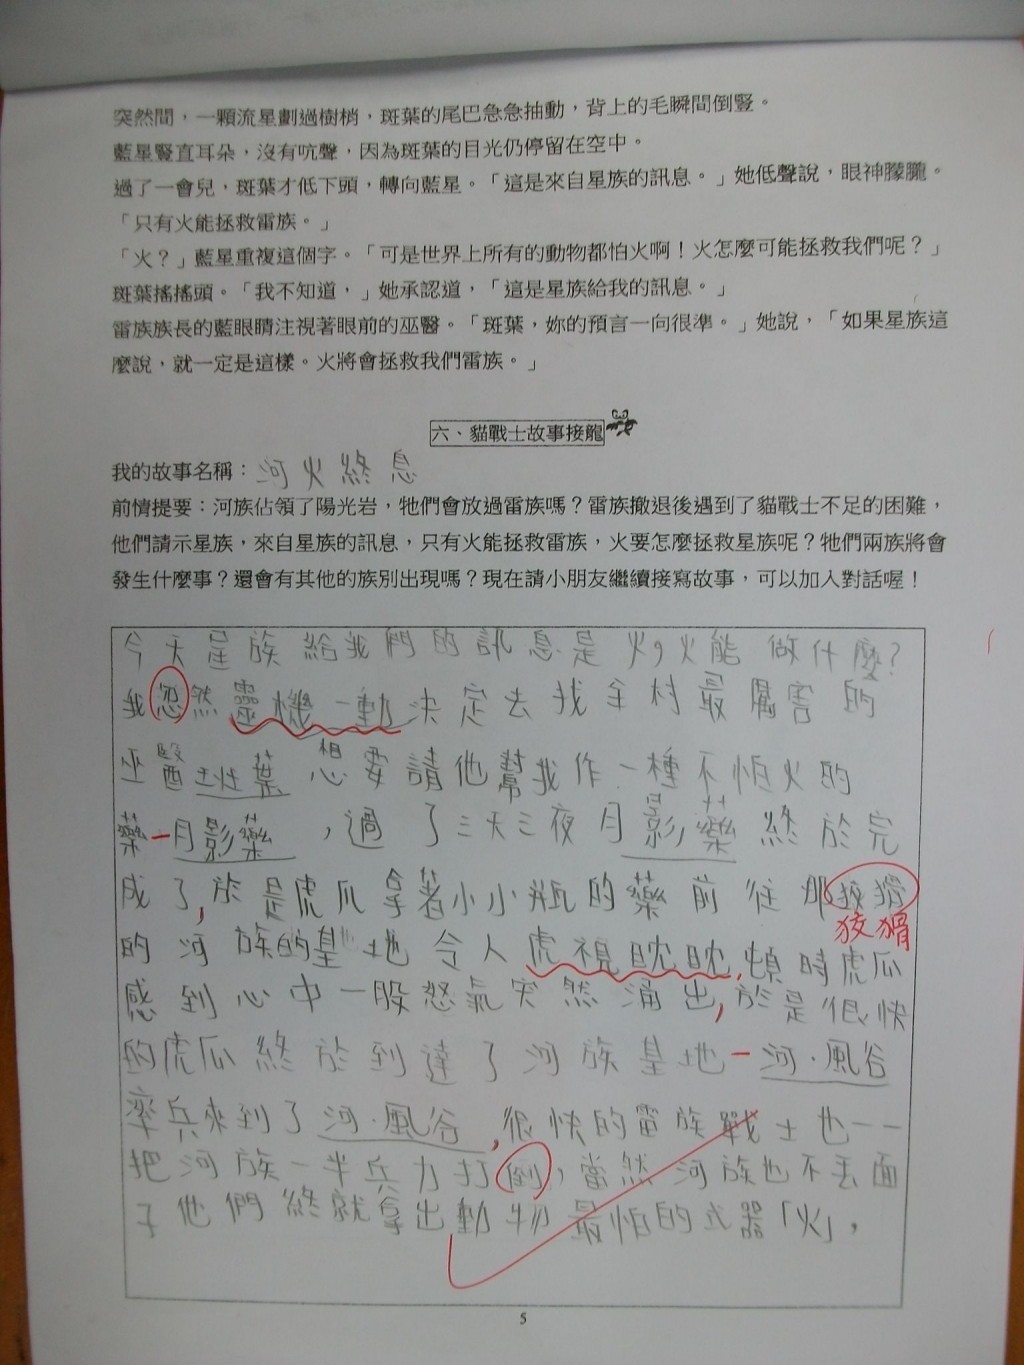 突然間，一顆流星劃過樹梢，斑葉的尾巴急急抽動，背上的毛瞬間倒豎。
藍星豎直耳朵，沒有吭聲，因為斑葉的目光仍停留在空中。
過了一會兒，斑葉才低下頭，轉向藍星。「這是來自星族的訊息。」她低聲說，眼神朦朧。
「只有火能拯救雷族。」
「火？」藍星重複這個字。「可是世界上所有的動物都怕火啊！火怎麼可能拯救我們呢？」
斑葉搖搖頭。「我不知道，」她承認道，「這是星族給我的訊息。」
雷族族長的藍眼睛注視著眼前的巫醫。「斑葉，妳的預言一向很準。」她說，「如果星族這
麼說，就一定是這樣。火將會拯救我們雷族。」
六、貓戰士故事接龍
我的故事名稱：河火終息
前情提要：河族佔領了陽光岩，牠們會放過雷族嗎？雷族撤退後遇到了貓戰士不足的困難，
他們請示星族，來自星族的訊息，只有火能拯救雷族，火要怎麼拯救星族呢？牠們兩族將會
發生什麼事？還會有其他的族別出現嗎？現在請小朋友繼續接寫故事，可以加入對話喔！
今天星族給我們的訊息是火，火能做什麼？
我忽然靈機一動決定去找全村最厲害的
巫醫斑葉想要請他幫我作一種不怕火的
藥－月影藥，過了三天三夜月影藥終於完
成了，於是虎爪拿著小小瓶的藥前往那狡猾
狡猾
的河族的基地令人虎視眈眈，頓時虎爪
感到心中一股怒氣突然湧出，於是很快
的虎爪終於到達了河族基地－河．風谷
率兵來到了河．風谷，很快的雷族戰士也一一
把河族一半兵力打倒，當然河族也不丟面
子他們終就拿出動物最怕的武器「火」，
5